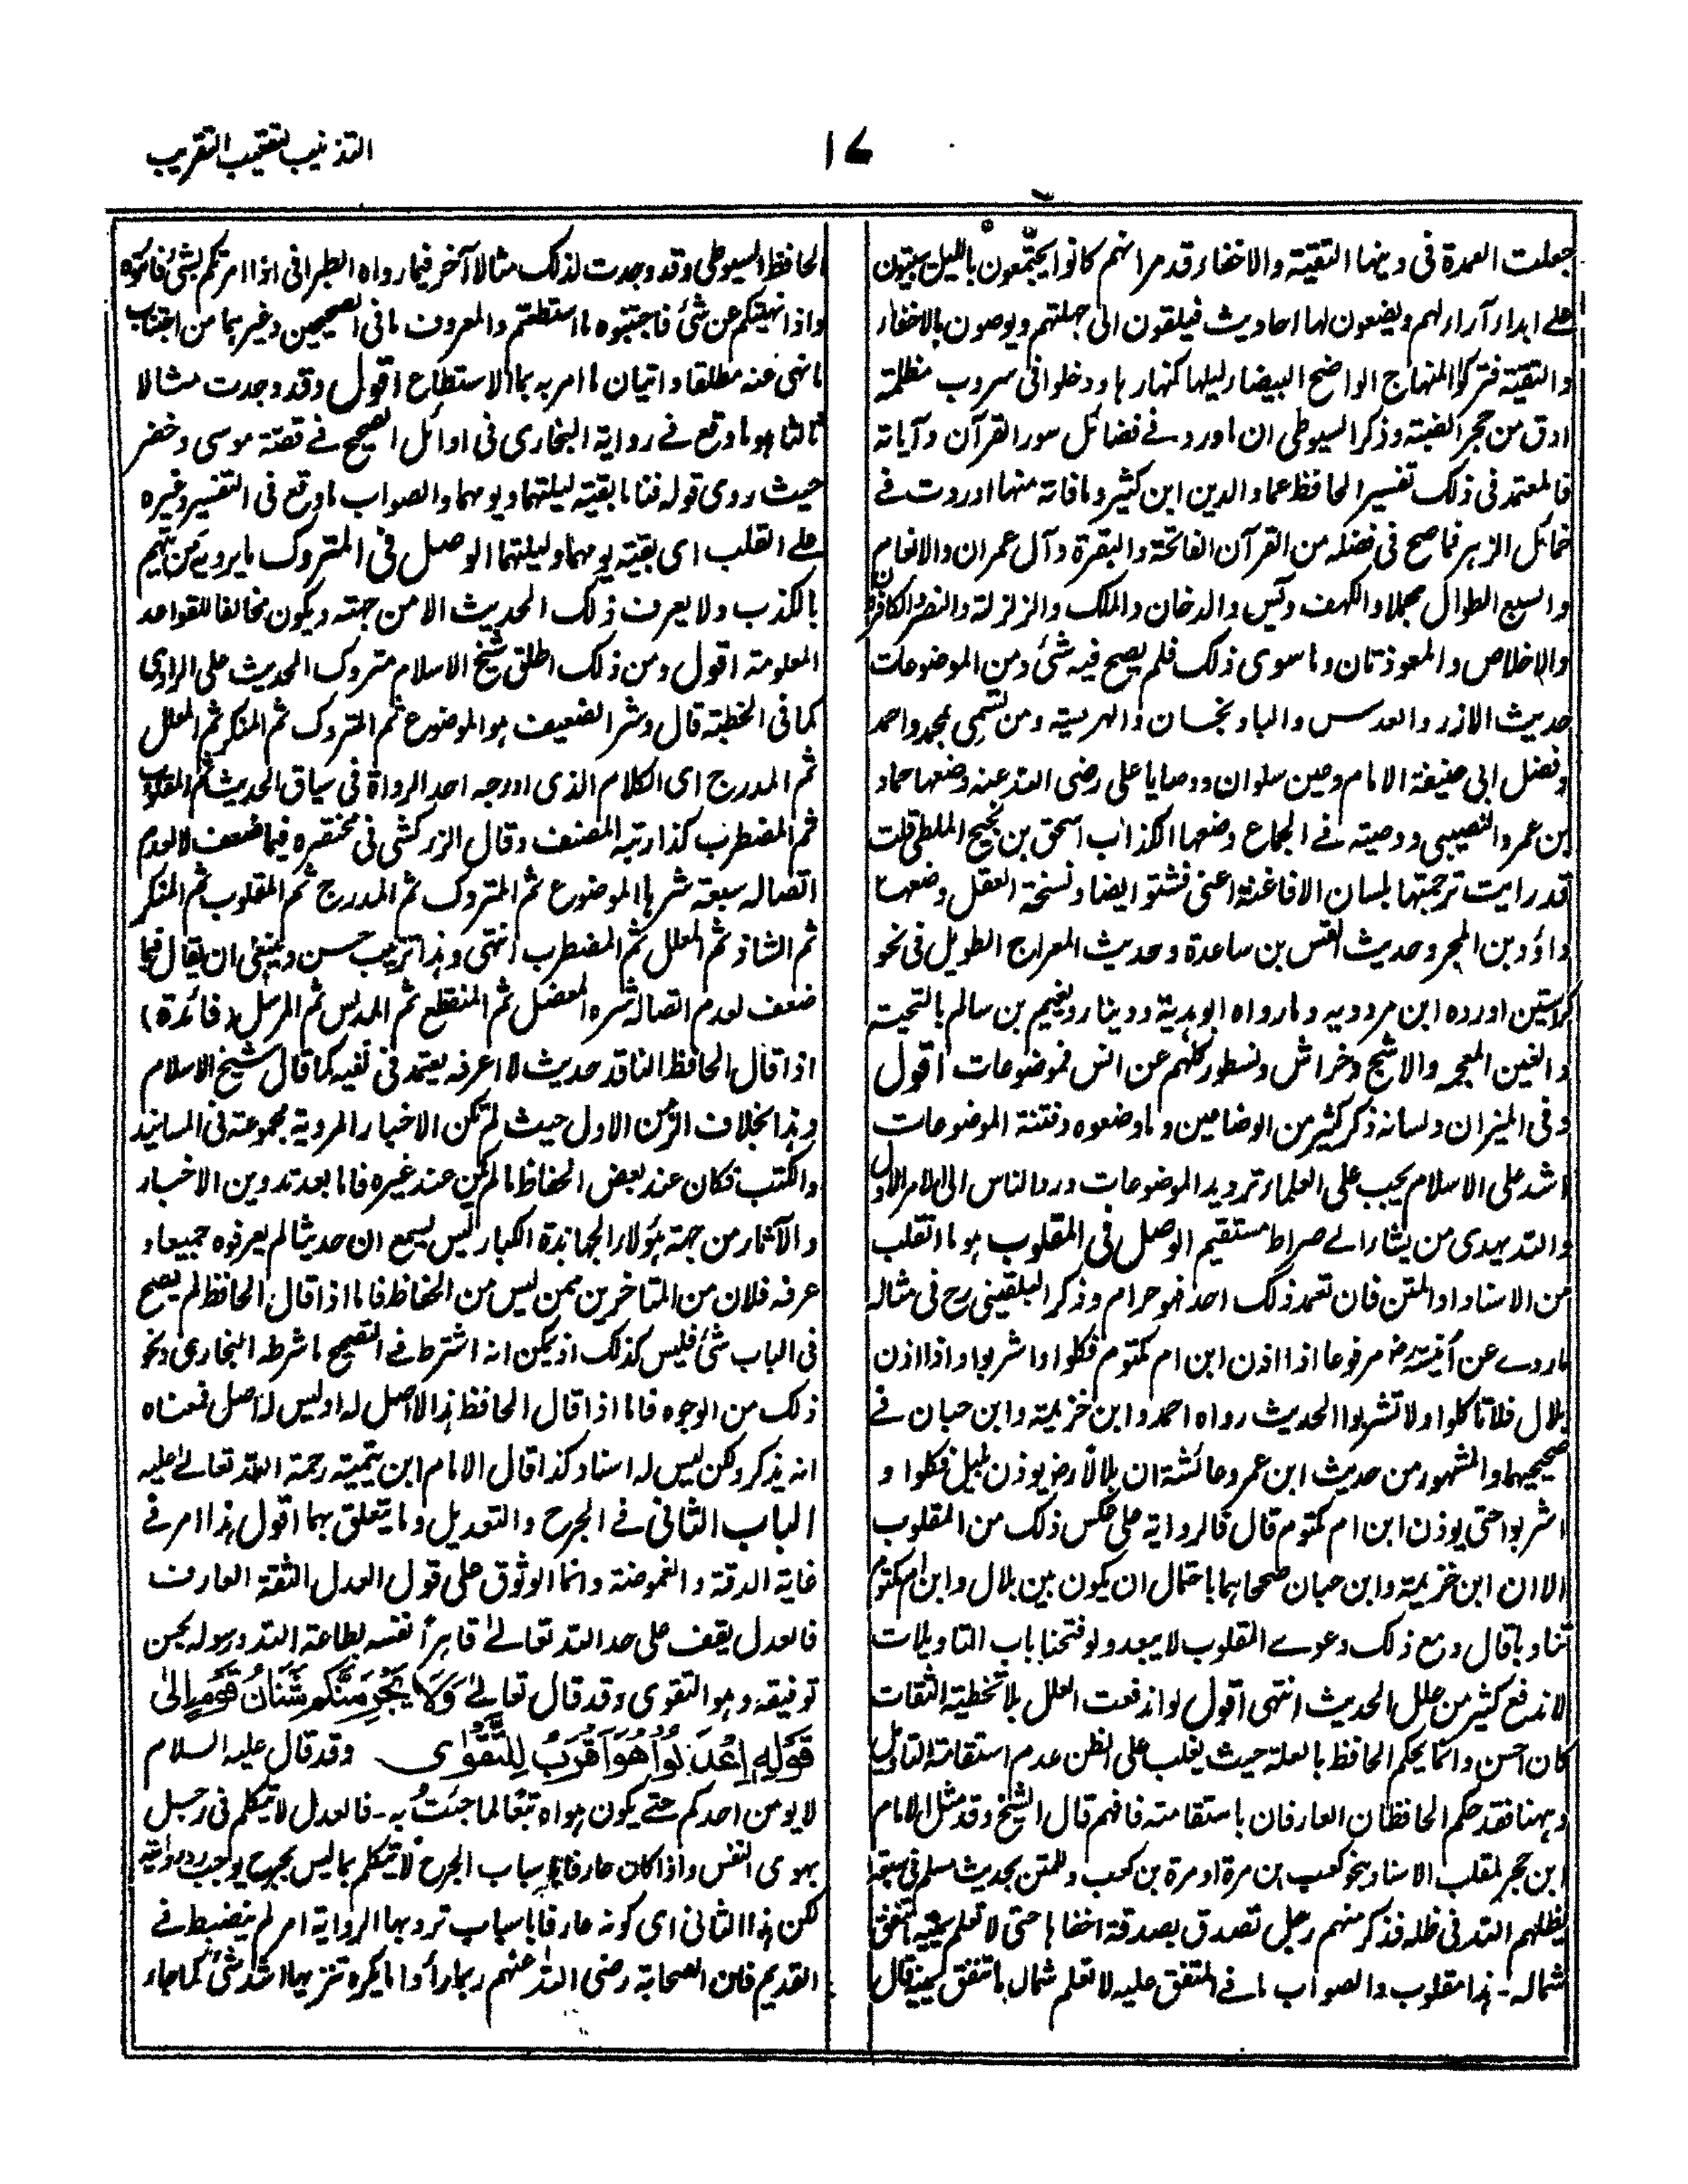 التذنيب لتعقيب التقريب
١٧
جعلت العمدة فى دينها التقية والاخفاء وقد مر انهم كانوا يجتمعون بالليل يبيتون
على ابداء آراء لهم ويضعون لها احاديث فيلقون الى جهلتهم ويوصون بالاخفاء
والتقية فتركوا المنهاج الواضح البيضاء ليلها كنهارها ودخلوا فى سروب مظلمة
ادق من حجر الضبة وذكر السيوطى ان ما ورد فى فضائل سور القرآن وآياته
فالمعتمد فى ذلك تفسير الحافظ عماد الدين ابن كثير وما فاته منها اوردت فى
خمائل الزهر فما صح فى فضله من القرآن الفاتحة والبقرة وآل عمران والانعام
والسبع الطوال مجملا والكهف ويٰس والدخان والملك والزلزلة والنصر والكافرون
والاخلاص والمعوذتان وما سوى ذلك فلم يصح فيه شئ ومن الموضوعات
حديث الارز والعدس والباذنجسان والهريسة ومن تسمى بمحمد واحمد
وفضل ابى حنيفة الامام وعين سلوان ووصايا على رضى الله عنه وضعها حماد
بن عمرو النصيبى ووصيته فى الجماع وضعها الكذاب اسحق بن نجيح الملطى قلت
قد رايت ترجمتها بلسان الافاغنة اعنى فشتو ايضا ونسخة العقل وضعها
داؤد بن المحبر وحديث القس بن ساعدة وحديث المعراج الطويل فى نحو
كراستين اورده ابن مردويه وما رواه ابو هدبة ودينار ويغنم بن سالم بالتحية
والغين المعجمه والاشج وخراش ونسطور كلهم عن انس فموضوعات اقول
وفى الميزان ولسانه ذكر كثير من الوضاعين وما وضعوه وفتنة الموضوعات
اشد على الاسلام يجب على العلماء ترديد الموضوعات ورد الناس الى الامر الاول
والله يهدى من يشاء الى صراط مستقيم الوصل فى المقلوب هو ما انقلب
من الاسناد او المتن فان تعمد ذلك احد فهو حرام وذكر البلقينى رح فى مثاله
ما روى عن أنيسة رض مرفوعا اذا اذن ابن ام مكتوم فكلوا واشربوا واذا اذن
بلال فلا تاكلوا ولا تشربوا الحديث رواه احمد وابن خزيمة وابن حبان فى
صحيحيهما والمشهور من حديث ابن عمر وعائشة ان بلالا رض يوذن بليل فكلوا و
اشربوا حتى يوذن ابن ام مكتوم قال فالرواية على عكس ذلك من المقلوب
الا ان ابن خزيمة وابن حبان صححاهما باحتمال ان يكون بين بلال وابن ام مكتوم
تناوبا قال ومع ذلك دعوى المقلوب لا يبعد ولو فتحنا باب التاويلات
لاندفع كثير من علل الحديث انتهى اقول لو اندفعت العلل بلا تخطية الثقات
كان احسن وانما يحكم الحافظ بالعلة حيث يغلب على الظن عدم استقامة التاويل
وههنا فقد حكم الحافظان العارفان باستقامته فافهم قال الشيخ وقد مثل الامام
ابن حجر لمقلب الاسناد بنحو كعب بن مرة او مرة بن كعب وللمتن بحديث مسلم فى سبعة
يظلهم الله فى ظله فذكر منهم رجل تصدق بصدقة اخفاها حتى لا تعلم يمينه ما تنفق
شماله - هذا مقلوب والصواب ما فى المتفق عليه لا تعلم شماله ما تنفق يمينه قال
الحافظ السيوطى وقد وجدت لذلك مثالا آخر فيما رواه الطبرانى اذا امرتكم بشئ فأتوه
واذا نهيتكم عن شئ فاجتنبوه ما استطعتم والمعروف ما فى الصحيحين وغيرهما من اجتناب
ما نهى عنه مطلقا واتيان ما امر به بما الاستطاع اقول وقد وجدت مثالا
ثالثا هو ما وقع فى رواية البخارى فى اوائل الصحيح فى قصة موسى وخضر
حيث روى قوله فناما بقية ليلتهما ويومهما والصواب ما وقع فى التفسير وغيره
على القلب اى بقية يومهما وليلتهما الوصل فى المتروك ما يرويه من يتهم
بالكذب ولا يعرف ذلك الحديث الا من جهته ويكون مخالفا للقواعد
المعلومة اقول ومن ذلك اطلق شيخ الاسلام متروك الحديث على الراوى
كما فى الخطبة قال وشر الضعيف هو الموضوع ثم المتروك ثم المنكر ثم المعلل
ثم المدرج اى الكلام الذى ادرجه احد الرواة فى سياق الحديث ثم المقلوب
ثم المضطرب كذا رتبه المصنف وقال الزركشى فى مختصره فيما ضعف لا لعدم
اتصاله سبعة شرها الموضوع ثم المتروك ثم المدرج ثم المقلوب ثم المنكر
ثم الشاذ ثم المعلل ثم المضطرب انتهى وهذا ترتيب حسن وينبغى ان يقال فيما
ضعف لعدم اتصاله شره المعضل ثم المنقطع ثم المدلس ثم المرسل (فائدة)
اذا قال الحافظ الناقد حديث لا اعرفه يعتمد فى نفيه كما قال شيخ الاسلام
وهذا بخلاف الزمن الاول حيث لم تكن الاخبار المروية مجموعة فى المسانيد
والكتب فكان عند بعض الحفاظ ما لم يكن عند غيره فاما بعد تدوين الاخبار
والآثار من جهة هؤلاء الجهابذة الكبار ليس يسمع ان حديثا لم يعرفوه جميعا و
عرفه فلان من المتاخرين ممن ليس من الحفاظ فاما اذا قال الحافظ لم يصح
فى الباب شئ فليس كذلك اذ يمكن انه اشترط فى الصحيح ما شرطه البخارى ونحو
ذلك من الوجوه فاما اذا قال الحافظ هذا لا اصل له او ليس له اصل فمعناه
انه يذكر ولكن ليس له اسناد كذا قال الامام ابن تيمية رحمة الله تعالى عليه
الباب الثانى فى الجرح والتعديل وما يتعلق بهما اقول هذا امر فى
غاية الدقة والغموضة وانما الوثوق على قول العدل الثقة العارف
فالعدل يقف على حد الله تعالى قاهراً نفسه بطاعة الله ورسوله بحسن
توفيقه وهو التقوى وقد قال تعالى وَلَا يَجْرِمَنَّكُمْ شَنَاٰنُ قَوْمٍ إلى
قَوْلِهِ اِعْدِلُوْا هُوَ اَقْرَبُ لِلتَّقْوٰى وقد قال عليه السلام
لا يومن احدكم حتى يكون هواه تبعًا لما جئتُ به - فالعدل لا يتكلم فى رجل
بهوى النفس واذا كان عارفا باسباب الجرح لا يتكلم بما ليس بجرح يوجب رد روايته
لكن هذا الثانى اى كونه عارفا باسباب ترد بها الرواية امر لم ينضبط فى
القديم فان الصحابة رضى الله عنهم ربما رأوا ما يكره تنزيها اشد شئ كما جاء